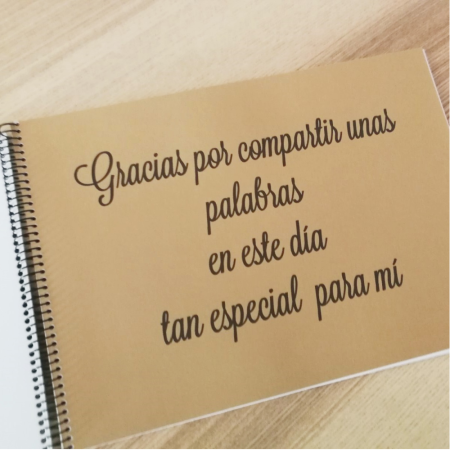 Gracias por compartir unas
palabras
en este día
tan especial para mí